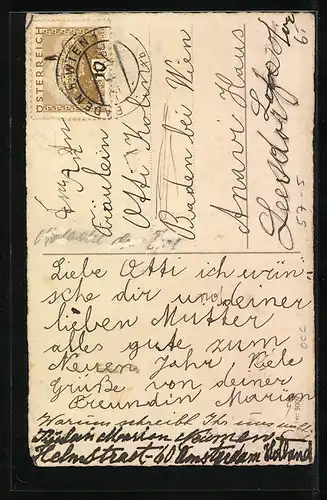 ÖSTERREICH
10
Fräulein
Otti
Baden bei Wien
Anavi Haus
Leesdorf
57-5
Liebe Otti ich wün-
sche dir und deiner
lieben Mutter
alles gute zum
Neuen Jahr Viele
Grüße von deiner
Freundin Marion
Warum schreibt Ihr uns nicht
Fräulein Marion
Helmstraat-60 Amsterdam Holland